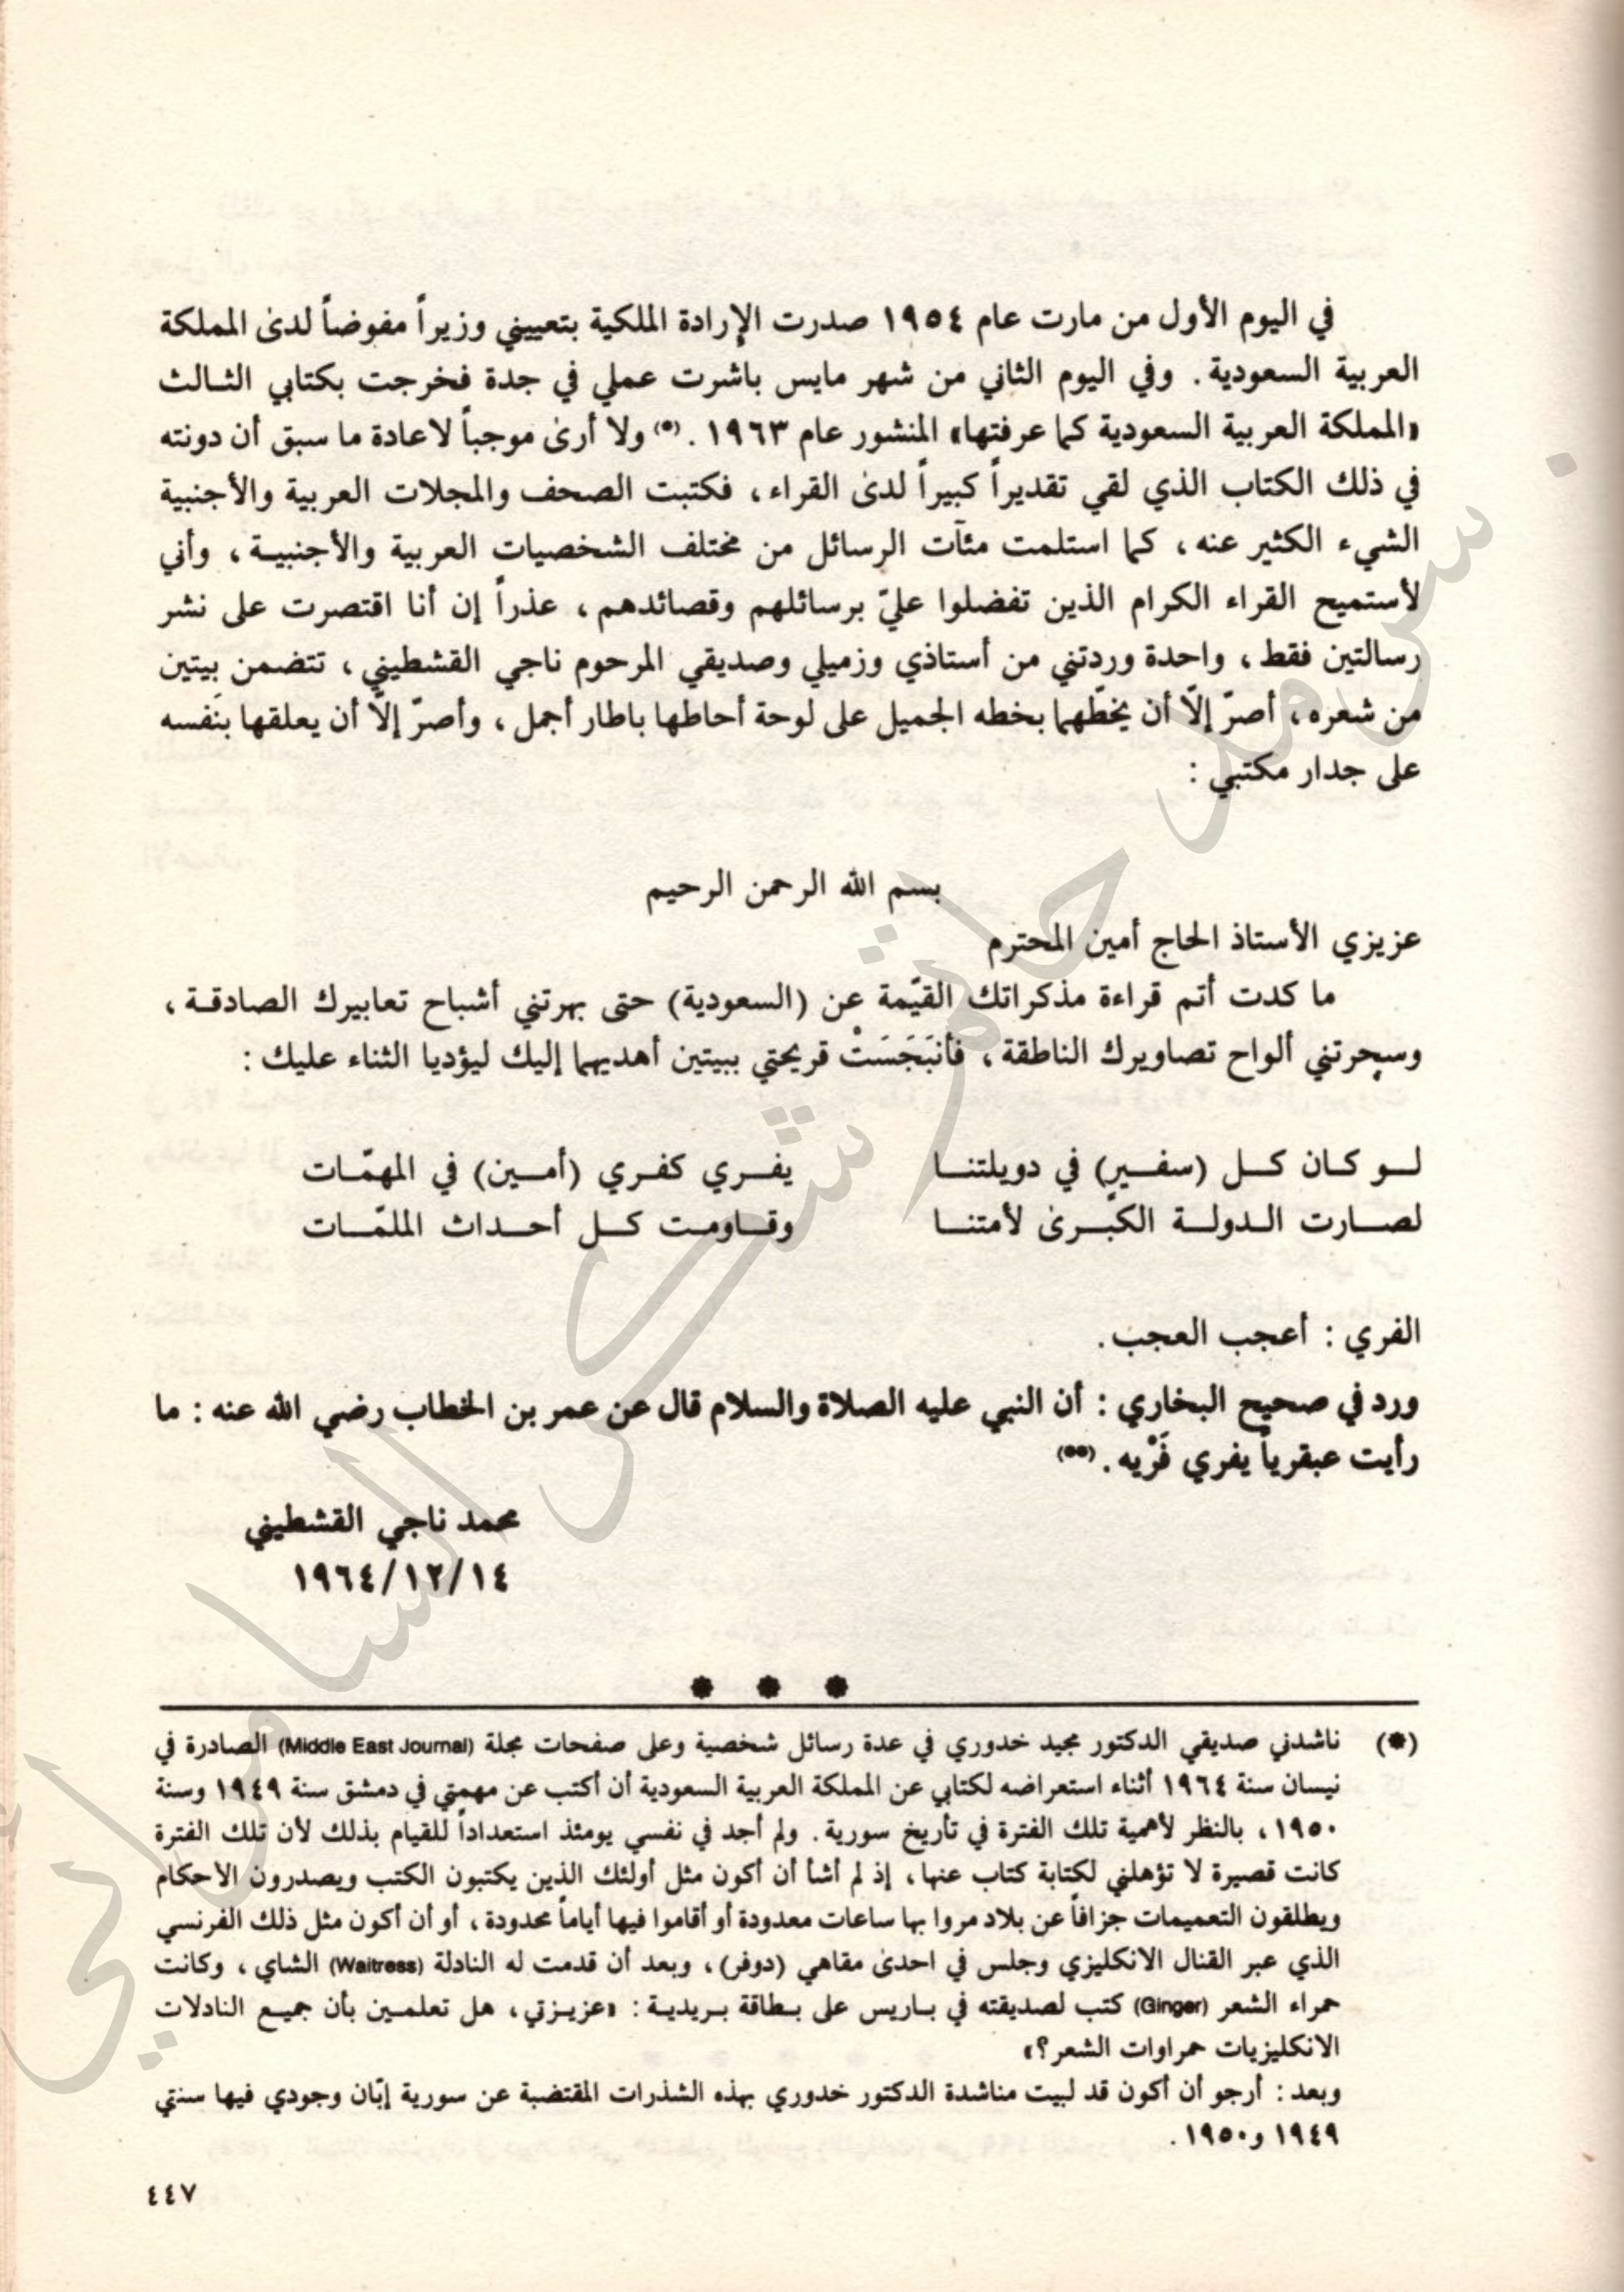 في اليوم الأول من مارت عام ١٩٥٤ صدرت الإرادة الملكية بتعييني وزيراً مفوضاً لدىٰ المملكة
العربية السعودية. وفي اليوم الثاني من شهر مايس باشرت عملي في جدة فخرجت بكتابي الثالث
«المملكة العربية السعودية كما عرفتها» المنشور عام ١٩٦٣.(*) ولا أرىٰ موجباً لاعادة ما سبق أن دونته
في ذلك الكتاب الذي لقي تقديراً كبيراً لدىٰ القراء، فكتبت الصحف والمجلات العربية والأجنبية
الشيء الكثير عنه، كما استلمت مئآت الرسائل من مختلف الشخصيات العربية والأجنبية، وأني
لأستميح القراء الكرام الذين تفضلوا عليّ برسائلهم وقصائدهم، عذراً إن أنا اقتصرت على نشر
رسالتين فقط، واحدة وردتني من أستاذي وزميلي وصديقي المرحوم ناجي القشطيني، تتضمن بيتين
من شعره، أصرّ إلّا أن يخطّهما بخطه الجميل على لوحة أحاطها باطار أجمل، وأصرّ إلّا أن يعلقها بنَفسه
على جدار مكتبي:
بسم الله الرحمن الرحيم
عزيزي الأستاذ الحاج أمين المحترم
ما كدت أتم قراءة مذكراتك القيّمة عن (السعودية) حتى بهرتني أشباح تعابيرك الصادقة،
وسحرتني ألواح تصاويرك الناطقة، فأنبَجَسَتْ قريحتي ببيتين أهديهما إليك ليؤديا الثناء عليك:
لو كان كل (سفير) في دويلتنا يفري كفري (أمين) في المهمّات
لصارت الدولة الكبرىٰ لأمتنا وقاومت كل أحداث الملمّات
الفري: أعجب العجب.
ورد في صحيح البخاري: أن النبي عليه الصلاة والسلام قال عن عمر بن الخطاب رضي الله عنه: ما
رأيت عبقرياً يفري فَرْيه.(**)
محمد ناجي القشطيني
١٩٦٤/١٢/١٤
* * *
(*) ناشدني صديقي الدكتور مجيد خدوري في عدة رسائل شخصية وعلى صفحات مجلة (Middle East Journal) الصادرة في
نيسان سنة ١٩٦٤ أثناء استعراضه لكتابي عن المملكة العربية السعودية أن أكتب عن مهمتي في دمشق سنة ١٩٤٩ وسنة
١٩٥٠، بالنظر لأهمية تلك الفترة في تأريخ سورية. ولم أجد في نفسي يومئذ استعداداً للقيام بذلك لأن تلك الفترة
كانت قصيرة لا تؤهلني لكتابة كتاب عنها، إذ لم أشأ أن أكون مثل أولئك الذين يكتبون الكتب ويصدرون الأحكام
ويطلقون التعميمات جزافاً عن بلاد مروا بها ساعات معدودة أو أقاموا فيها أياماً محدودة، أو أن أكون مثل ذلك الفرنسي
الذي عبر القنال الانكليزي وجلس في احدىٰ مقاهي (دوفر)، وبعد أن قدمت له النادلة (Waitress) الشاي، وكانت
حمراء الشعر (Ginger) كتب لصديقته في باريس على بطاقة بريدية: «عزيزتي، هل تعلمين بأن جميع النادلات
الانكليزيات حمراوات الشعر؟»
وبعد: أرجو أن أكون قد لبيت مناشدة الدكتور خدوري بهذه الشذرات المقتضبة عن سورية إبّان وجودي فيها سنتي
١٩٤٩ و١٩٥٠.
٤٤٧